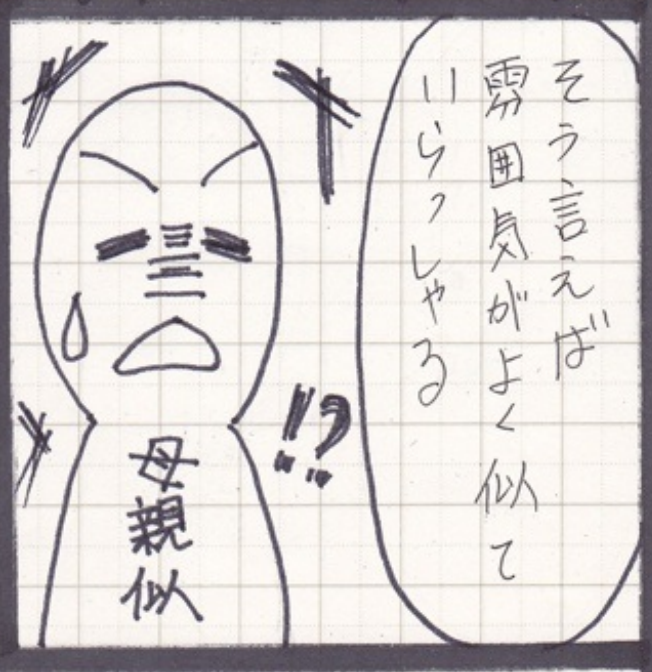 そう言えば
雰囲気がよく似て
いらっしゃる
!?
母親似